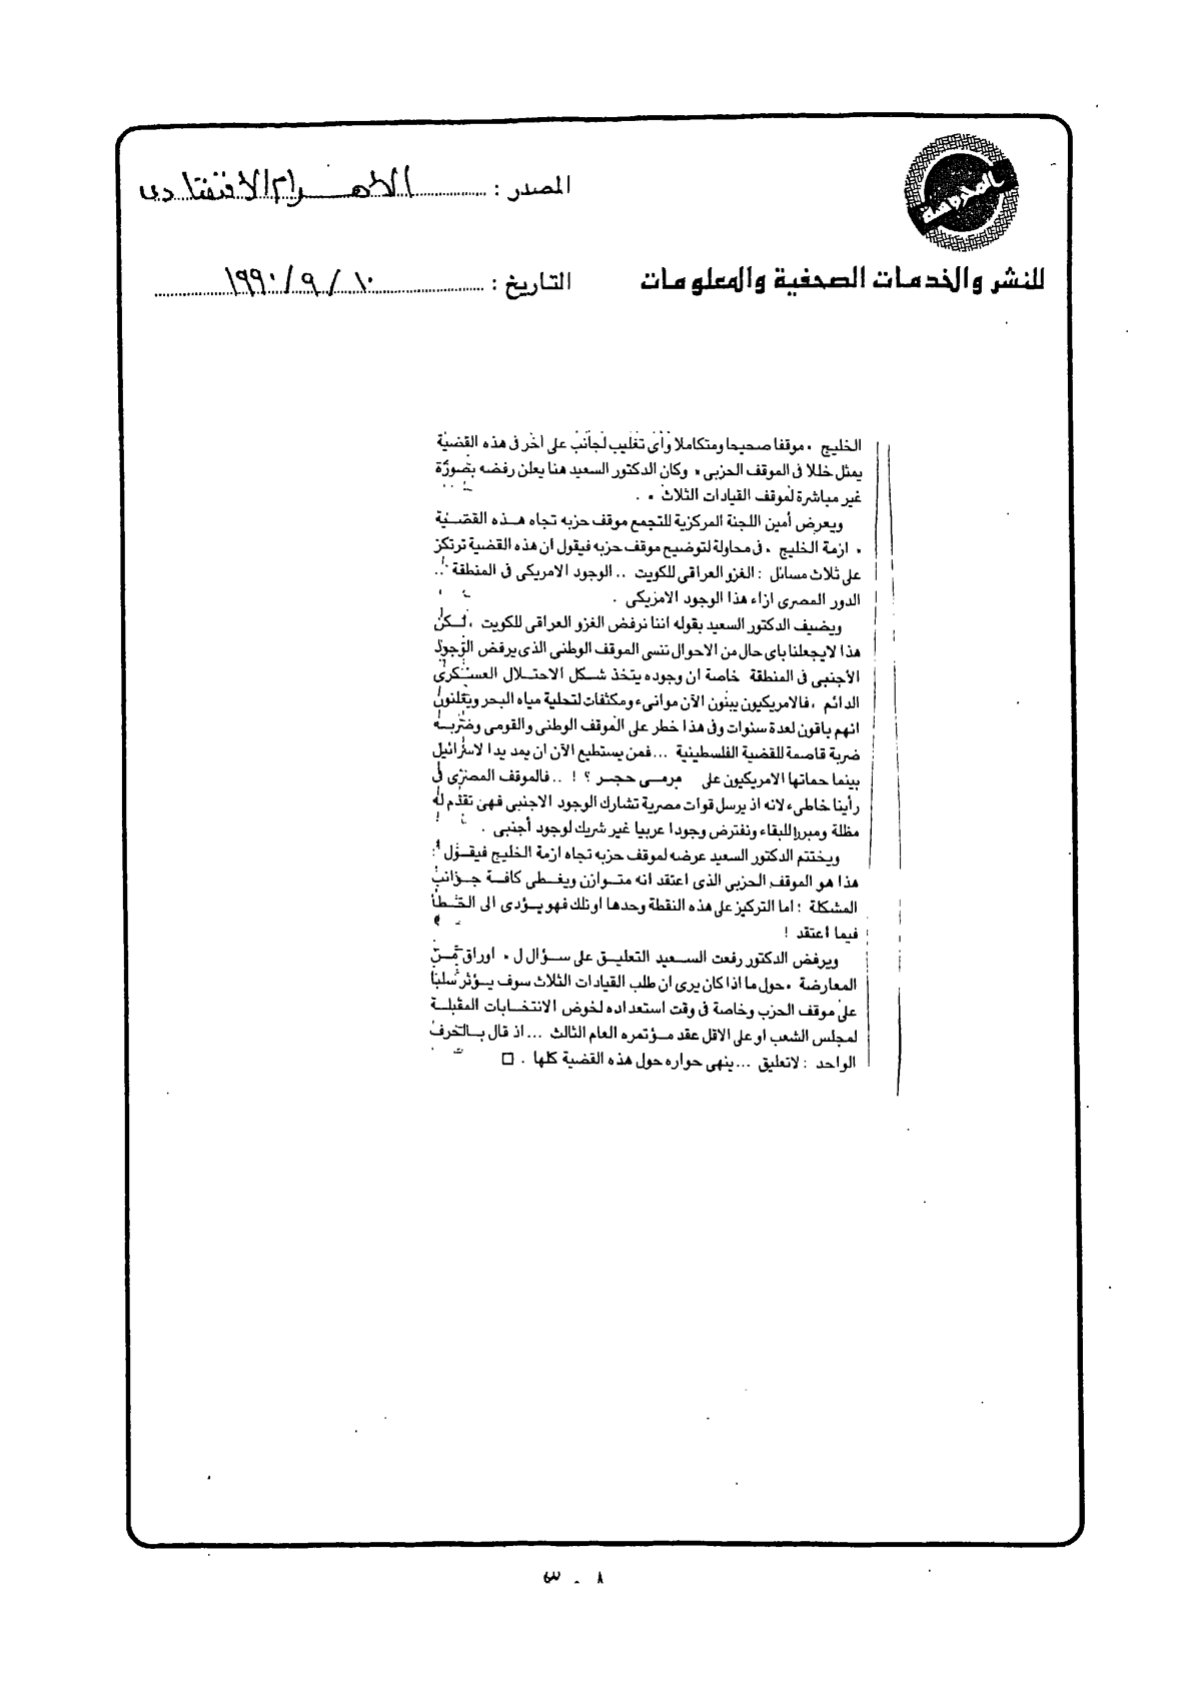 المصدر : الأهرام الاقتصادى
المحروسة
للنشر والخدمات الصحفية والمعلومات
التاريخ : ١٠ / ٩ / ١٩٩٠
الخليج ، موقفا صحيحا ومتكاملا وأى تغليب لجانب على آخر فى هذه القضية
يمثل خللا فى الموقف الحزبى ، وكان الدكتور السعيد هنا يعلن رفضه بصورة
غير مباشرة لموقف القيادات الثلاث .
ويعرض أمين اللجنة المركزية للتجمع موقف حزبه تجاه هذه القضية
، ازمة الخليج ، فى محاولة لتوضيح موقف حزبه فيقول ان هذه القضية ترتكز
على ثلاث مسائل : الغزو العراقى للكويت .. الوجود الامريكى فى المنطقة ..
الدور المصرى ازاء هذا الوجود الامريكى .
ويضيف الدكتور السعيد بقوله اننا نرفض الغزو العراقى للكويت ، لكن
هذا لايجعلنا باى حال من الاحوال ننسى الموقف الوطنى الذى يرفض الوجود
الأجنبى فى المنطقة خاصة ان وجوده يتخذ شكل الاحتلال العسكرى
الدائم ، فالامريكيون يبنون الآن موانىء ومكثفات لتحلية مياه البحر ويعلنون
انهم باقون لعدة سنوات وفى هذا خطر على الموقف الوطنى والقومى وضربه
ضربة قاصمة للقضية الفلسطينية ... فمن يستطيع الآن ان يمد يدا لاسرائيل
بينما حماتها الامريكيون على مرمى حجر ؟ ! .. فالموقف المصرى فى
رأينا خاطىء لانه اذ يرسل قوات مصرية تشارك الوجود الاجنبى فهى تقدم له
مظلة ومبررا للبقاء ونفترض وجودا عربيا غير شريك لوجود أجنبى .
ويختتم الدكتور السعيد عرضه لموقف حزبه تجاه ازمة الخليج فيقول :
هذا هو الموقف الحزبى الذى اعتقد انه متوازن ويغطى كافة جوانب
المشكلة ؛ اما التركيز على هذه النقطة وحدها او تلك فهو يؤدى الى الخطأ
فيما اعتقد !
ويرفض الدكتور رفعت السعيد التعليق على سؤال ل ، اوراق من
المعارضة ، حول ما اذا كان يرى ان طلب القيادات الثلاث سوف يؤثر سلبا
على موقف الحزب وخاصة فى وقت استعداده لخوض الانتخابات المقبلة
لمجلس الشعب او على الاقل عقد مؤتمره العام الثالث ... اذ قال بالحرف
الواحد : لاتعليق ... ينهى حواره حول هذه القضية كلها . □
٣ - ٨